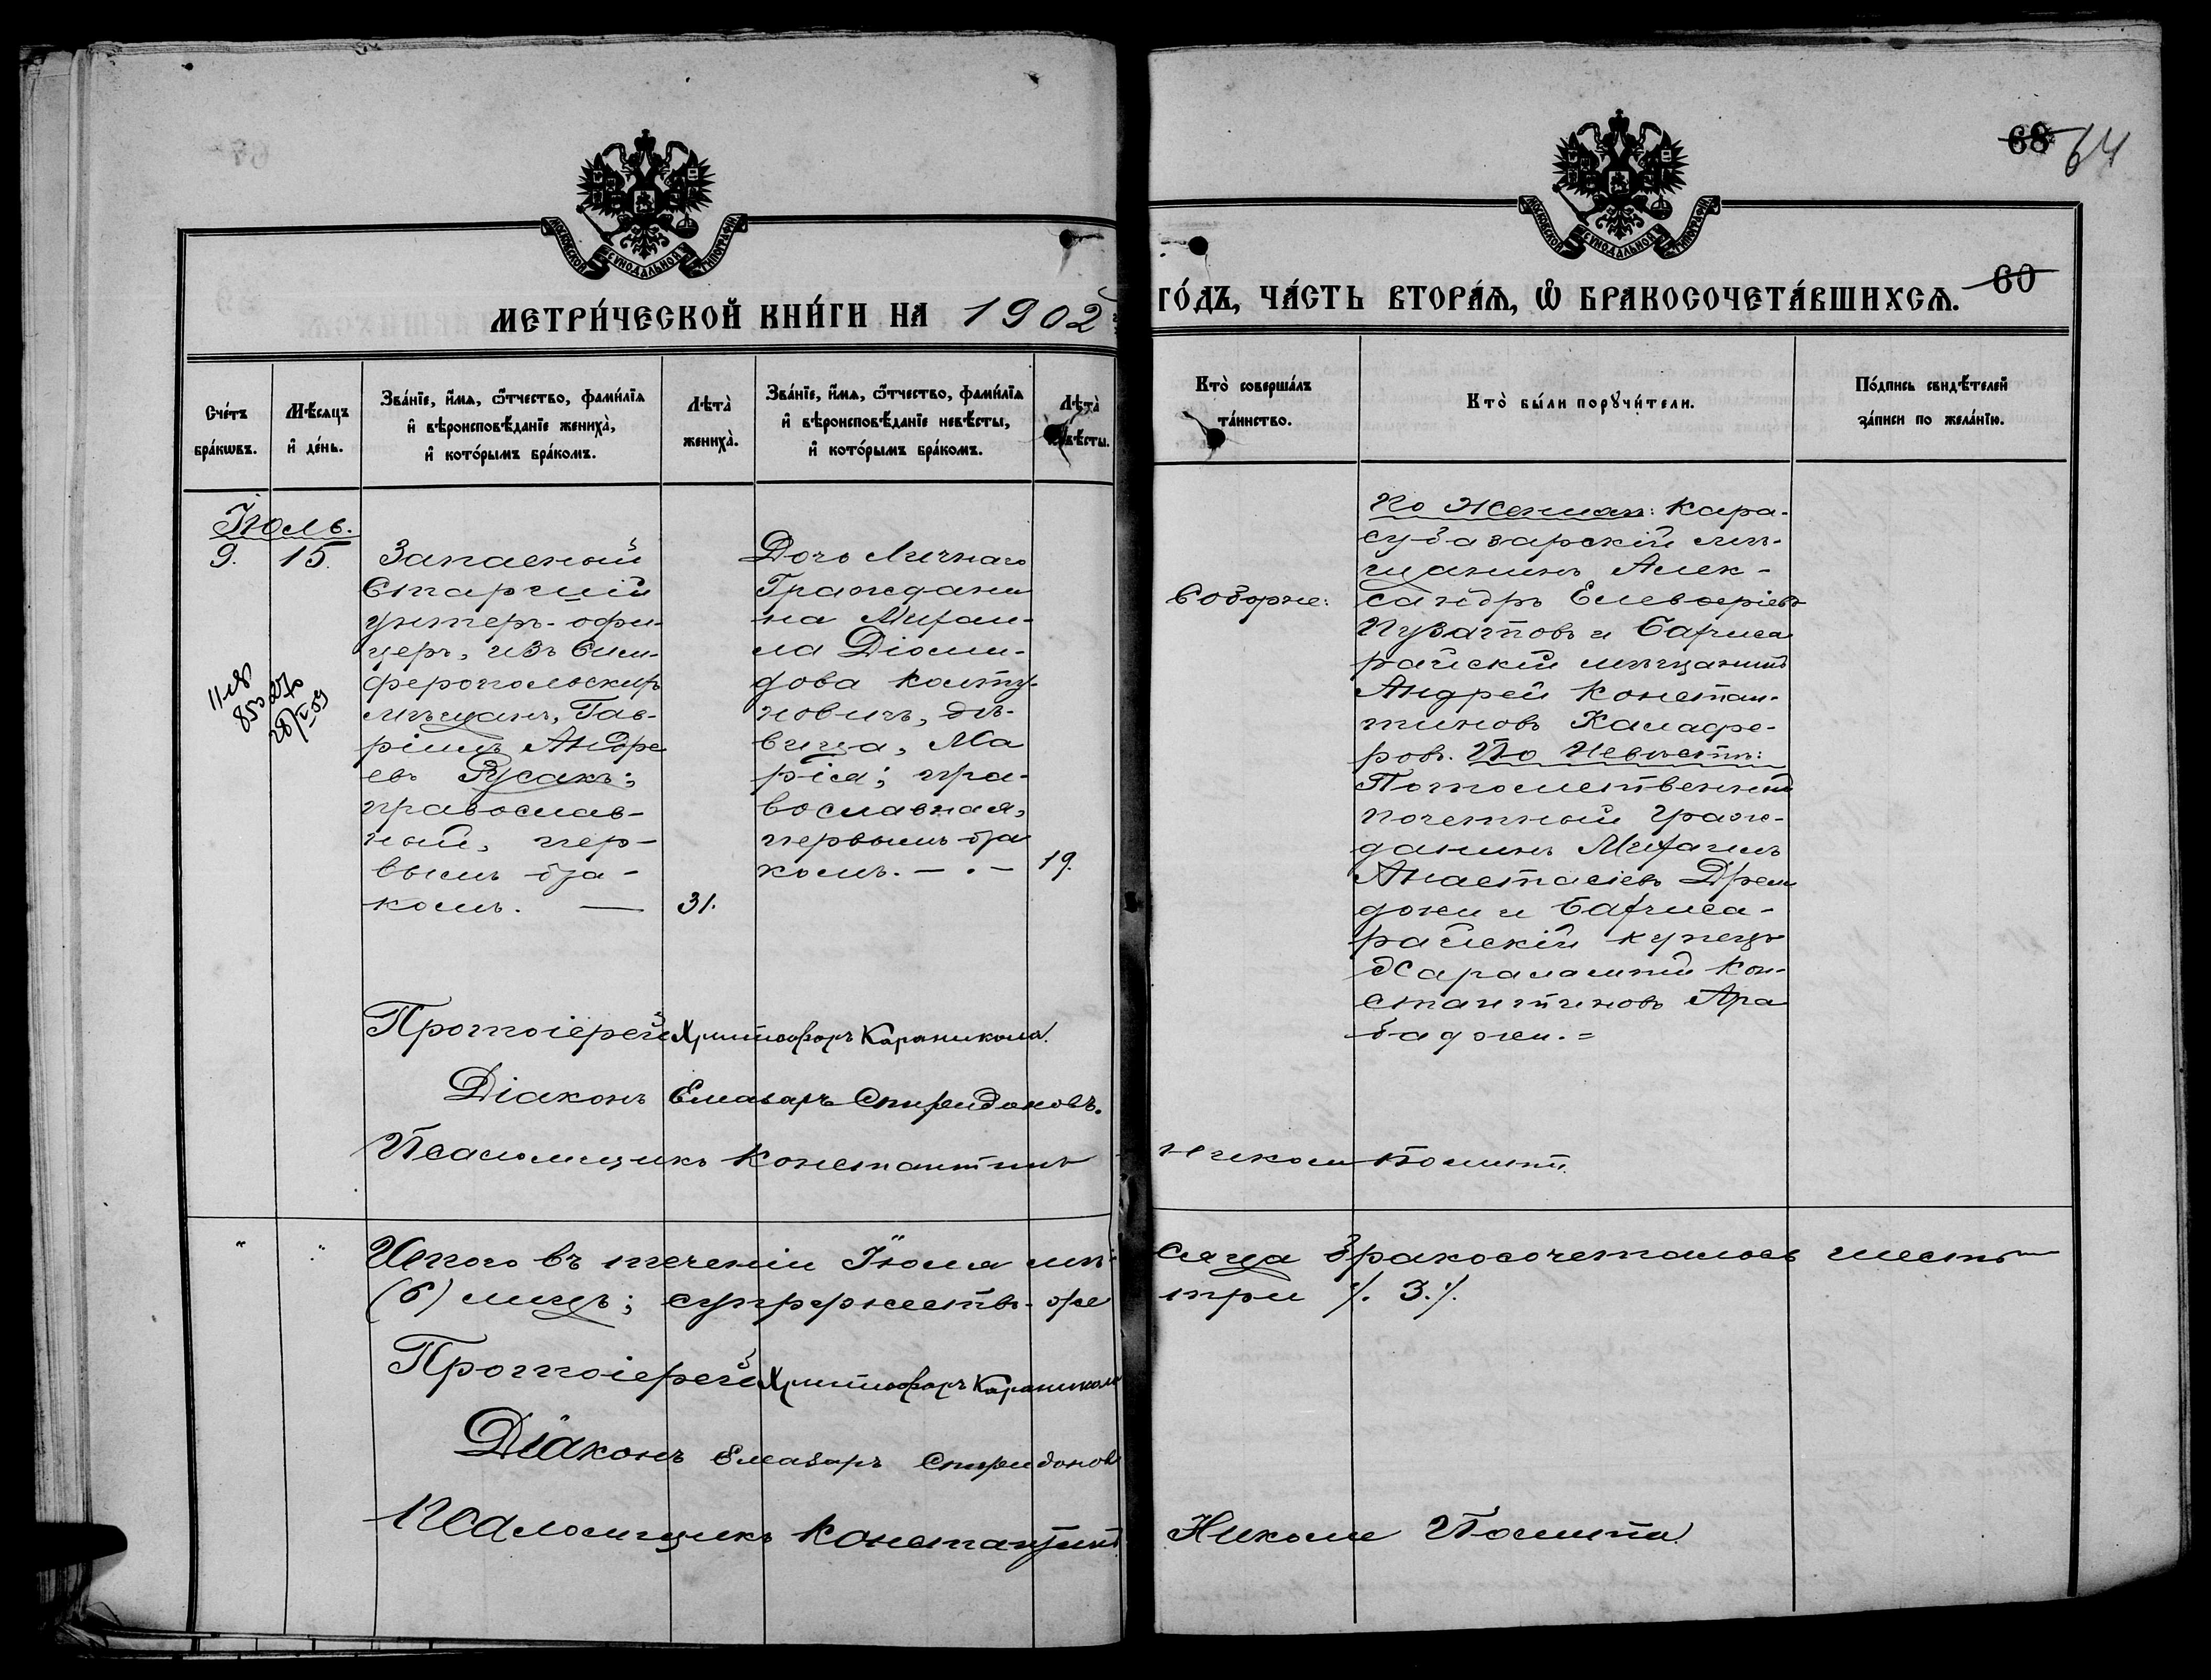 68
64
МОСКОВСКОЙ СѴНОДАЛЬНОЙ ТИПОГРАФІИ
МОСКОВСКОЙ СѴНОДАЛЬНОЙ ТИПОГРАФІИ
МЕТРИ́ЧЕСКОЙ КНИ́ГИ НА 1902
ГО́ДЪ, ЧА́СТЬ ВТОРА́Ѧ, Ѽ БРАКОСОЧЕТА́ВШИХСѦ.
60
Сче́тъ
бра́кѡвъ.
Мѣ́сяцъ
и҆ де́нь.
Зва́нїе, и҆́мѧ, ѻ҆́тчество, фами́лїѧ
и҆ вѣроисповѣ́данїе жениха̀,
и҆ кото́рымъ бра́комъ.
Лѣта̀
жениха̀.
Зва́нїе, и҆́мѧ, ѻ҆́тчество, фами́лїѧ
и҆ вѣроисповѣ́данїе невѣ́сты,
и҆ кото́рымъ бра́комъ.
Лѣта̀
невѣ́сты.
Кто̀ соверша́лъ
та́инство.
Кто̀ бы́ли порꙋчи́тели.
По́дпись свидѣ́телей
за́писи по жела́нїю.
Іюль.
9.
15.
Запасный
Старшій
унтеръ-офи-
церъ, изъ Сим-
феропольскихъ
мѣщанъ, Гав-
ріилъ Андре
евъ Русакъ;
православ-
ный, пер-
вымъ бра-
комъ. —
31.
Дочь Личнаго
Граждани
на Михаи-
ла Діоми-
дова Колту-
новичъ, дѣ-
вица, Ма
рія; пра-
вославная,
первымъ бра
комъ. — . —
19.
Соборне:
По Женихѣ: Кара-
субазарскій мѣ-
щанинъ Алек-
сандръ Елевѳеріевъ
Пузатовъ и Бахчиса
райскій мѣщанинъ
Андрей Констан-
тиновъ Каладже-
ровъ. По Невѣстѣ:
Потомственный
почетный граж-
данинъ Михаилъ
Анастасіевъ
и Бахчиса-
райскій купецъ
Харалампій Кон-
стантиновъ Ара
баджи. =
Протоіерей Христофоръ Караникола.
Діаконъ Елеазаръ Спиридоновъ.
Псаломщикъ Константинъ
Николи
Итого въ теченіи Іюля мѣ-
сяца бракосочеталось шесть
(6) лицъ; супружествъ же
три /. 3./.
Протоіерей Христофоръ Караникола
Діаконъ Елеазаръ Спиридоновъ
Псаломщикъ Константинъ